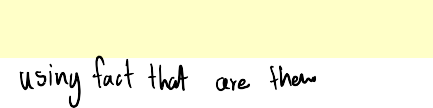 using fact that are them